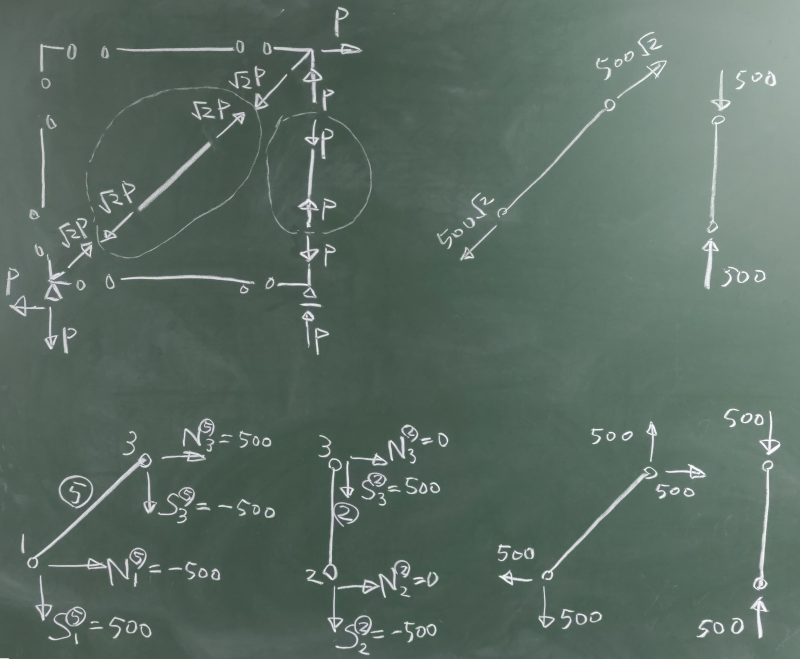 P
0 0 0 0
√2P P
0
√2P
0 P
P
0 √2P
0 √2P P
0 0 0 0
P
P P
500√2
500
500√2
500
3 N₃^⑤=500
⑤ S₃^⑤=-500
1 N₁^⑤=-500
S₁^⑤=500
3 N₃^②=0
S₃^②=500
②
2 N₂^②=0
S₂^②=-500
500
500
500
500
500
500